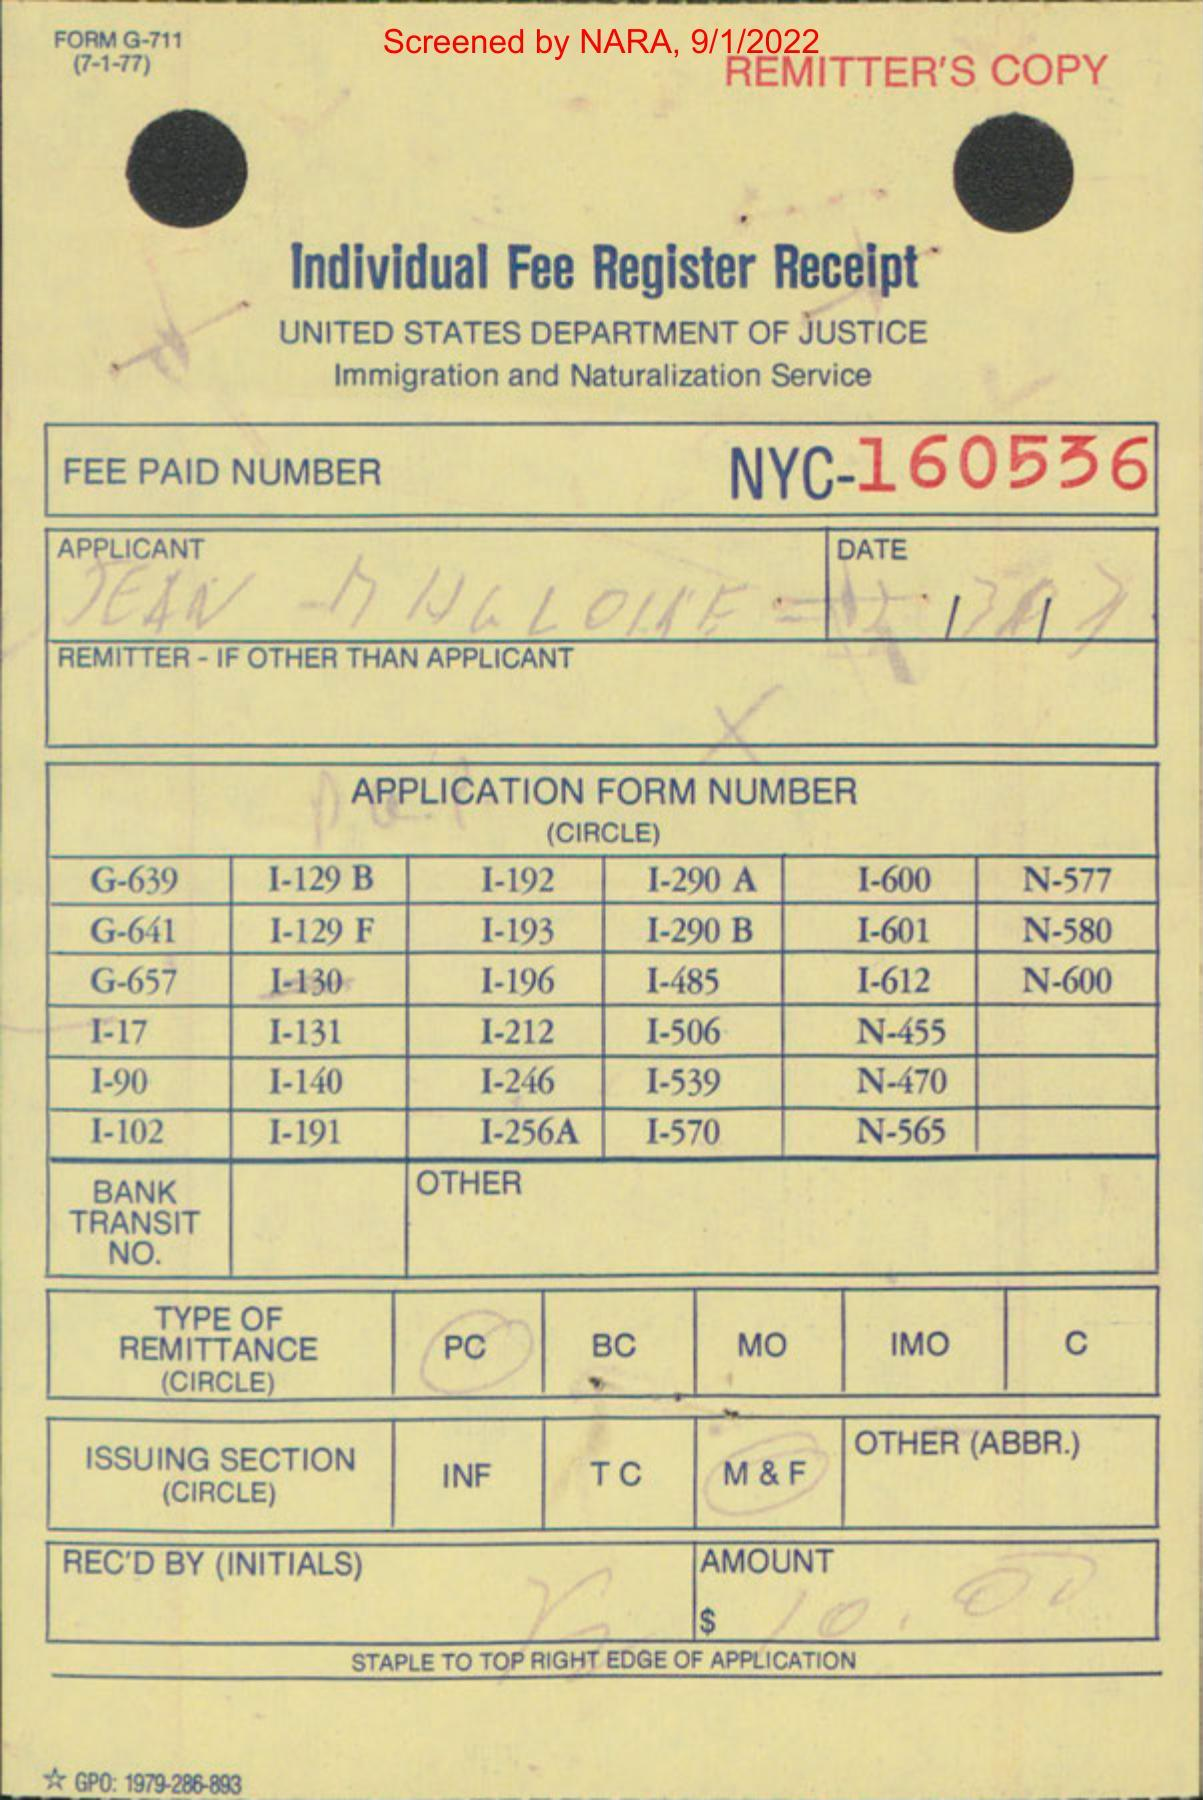 FORM G-711
(7-1-77)
Screened by NARA, 9/1/2022
REMITTER'S COPY
Individual Fee Register Receipt
UNITED STATES DEPARTMENT OF JUSTICE
Immigration and Naturalization Service
FEE PAID NUMBER NYC-160536
APPLICANT DATE
JEAN
REMITTER - IF OTHER THAN APPLICANT
APPLICATION FORM NUMBER
(CIRCLE)
G-639 I-129 B I-192 I-290 A I-600 N-577
G-641 I-129 F I-193 I-290 B I-601 N-580
G-657 I-130 I-196 I-485 I-612 N-600
I-17 I-131 I-212 I-506 N-455
I-90 I-140 I-246 I-539 N-470
I-102 I-191 I-256A I-570 N-565
BANK
TRANSIT
NO.
OTHER
TYPE OF
REMITTANCE
(CIRCLE)
PC BC MO IMO C
ISSUING SECTION
(CIRCLE)
INF T C M & F
OTHER (ABBR.)
REC'D BY (INITIALS) AMOUNT
$ 10.00
STAPLE TO TOP RIGHT EDGE OF APPLICATION
☆ GPO: 1979-286-893